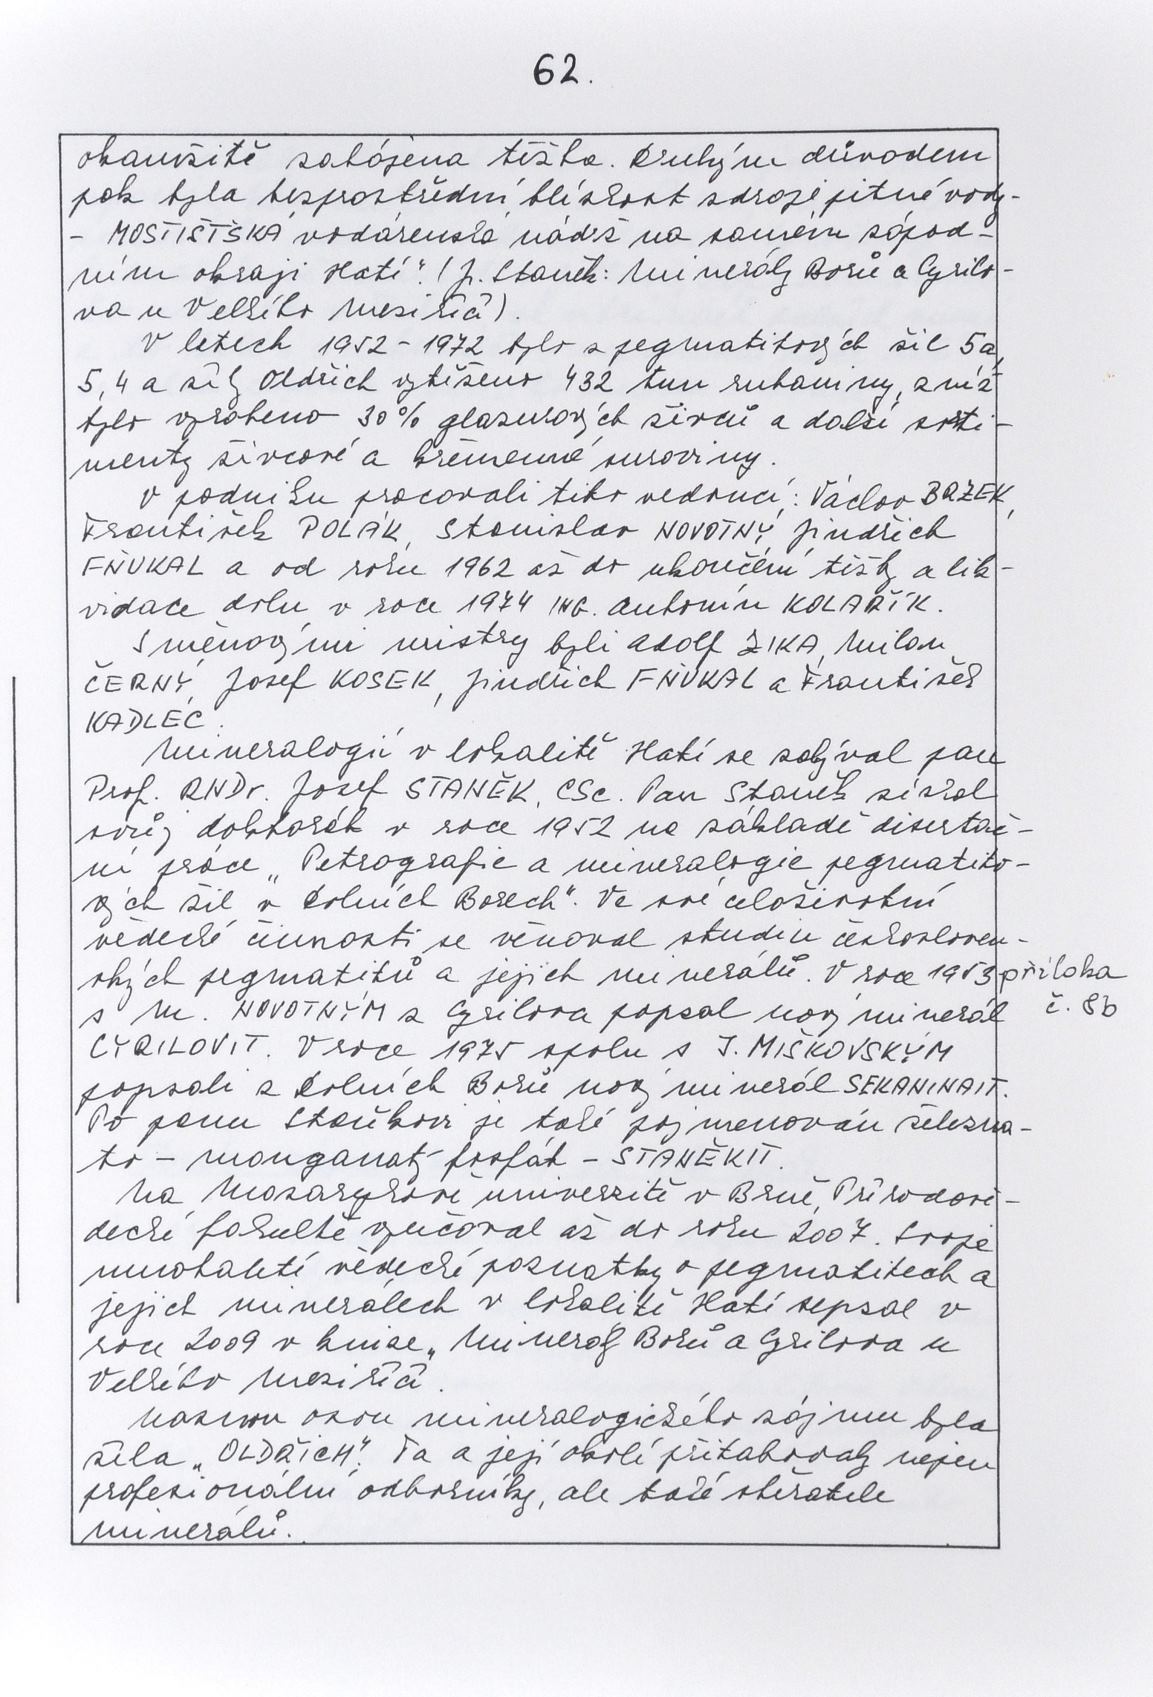 62.
okamžitě zahájena těžba. Druhým důvodem
pak byla bezprostřední blízkost zdroje pitné vody-
- MOSTIŠŤSKÁ vodárenská nádrž na samém západ-
ním okraji Hatí". (J. Staněk: Minerály Borů a Cyrilo-
va u Velkého Meziříčí).
V letech 1952 - 1972 bylo z pegmatitových žil 5a,
5, 4 a žíly Oldřich vytěženo 432 tun rubaniny, z níž
bylo vyrobeno 30% glazurových živců a další sorti-
menty živcové a křemenné suroviny.
V podniku pracovali tito vedoucí: Václav BRZEK,
František POLÁK, Stanislav NOVOTNÝ, Jindřich
FŇUKAL a od roku 1962 až do ukončení těžby a lik-
vidace dolu v roce 1974 ING. Antonín KOLAŘÍK.
Směnovými mistry byli Adolf ZIKA, Milan
ČERNÝ, Josef KOSEK, Jindřich FŇUKAL a František
KADLEC.
Mineralogií v lokalitě Hatí se zabýval pan
Prof. RNDr. Josef STANĚK, CSc. Pan Staněk získal
svůj doktorát v roce 1952 na základě disertač-
ní práce „Petrografie a mineralogie pegmatito-
vých žil v Dolních Borech". Ve své celoživotní
vědecké činnosti se věnoval studiu českosloven-
ských pegmatitů a jejich minerálů. V roce 1953 příloha
s M. NOVOTNÝM z Cyrilova popsal nový minerál č. 8b
CYRILOVIT. V roce 1975 spolu s J. MIŠKOVSKÝM
popsali z Dolních Borů nový minerál SEKANINAIT.
Po panu Staňkovi je také pojmenován železna-
to - manganatý fosfát - STANĚKIT.
Na Masarykově univerzitě v Brně, Přírodově-
decké fakultě vyučoval až do roku 2007. Svoje
mnohaleté vědecké poznatky o pegmatitech a
jejich minerálech v lokalitě Hatí sepsal v
roce 2009 v knize „Minerály Borů a Cyrilova u
Velkého Meziříčí.
osou mineralogického zájmu byla
žíla „OLDŘICH". Ta a její okolí přitahovaly nejen
profesionální odborníky, ale také sběratele
minerálů.